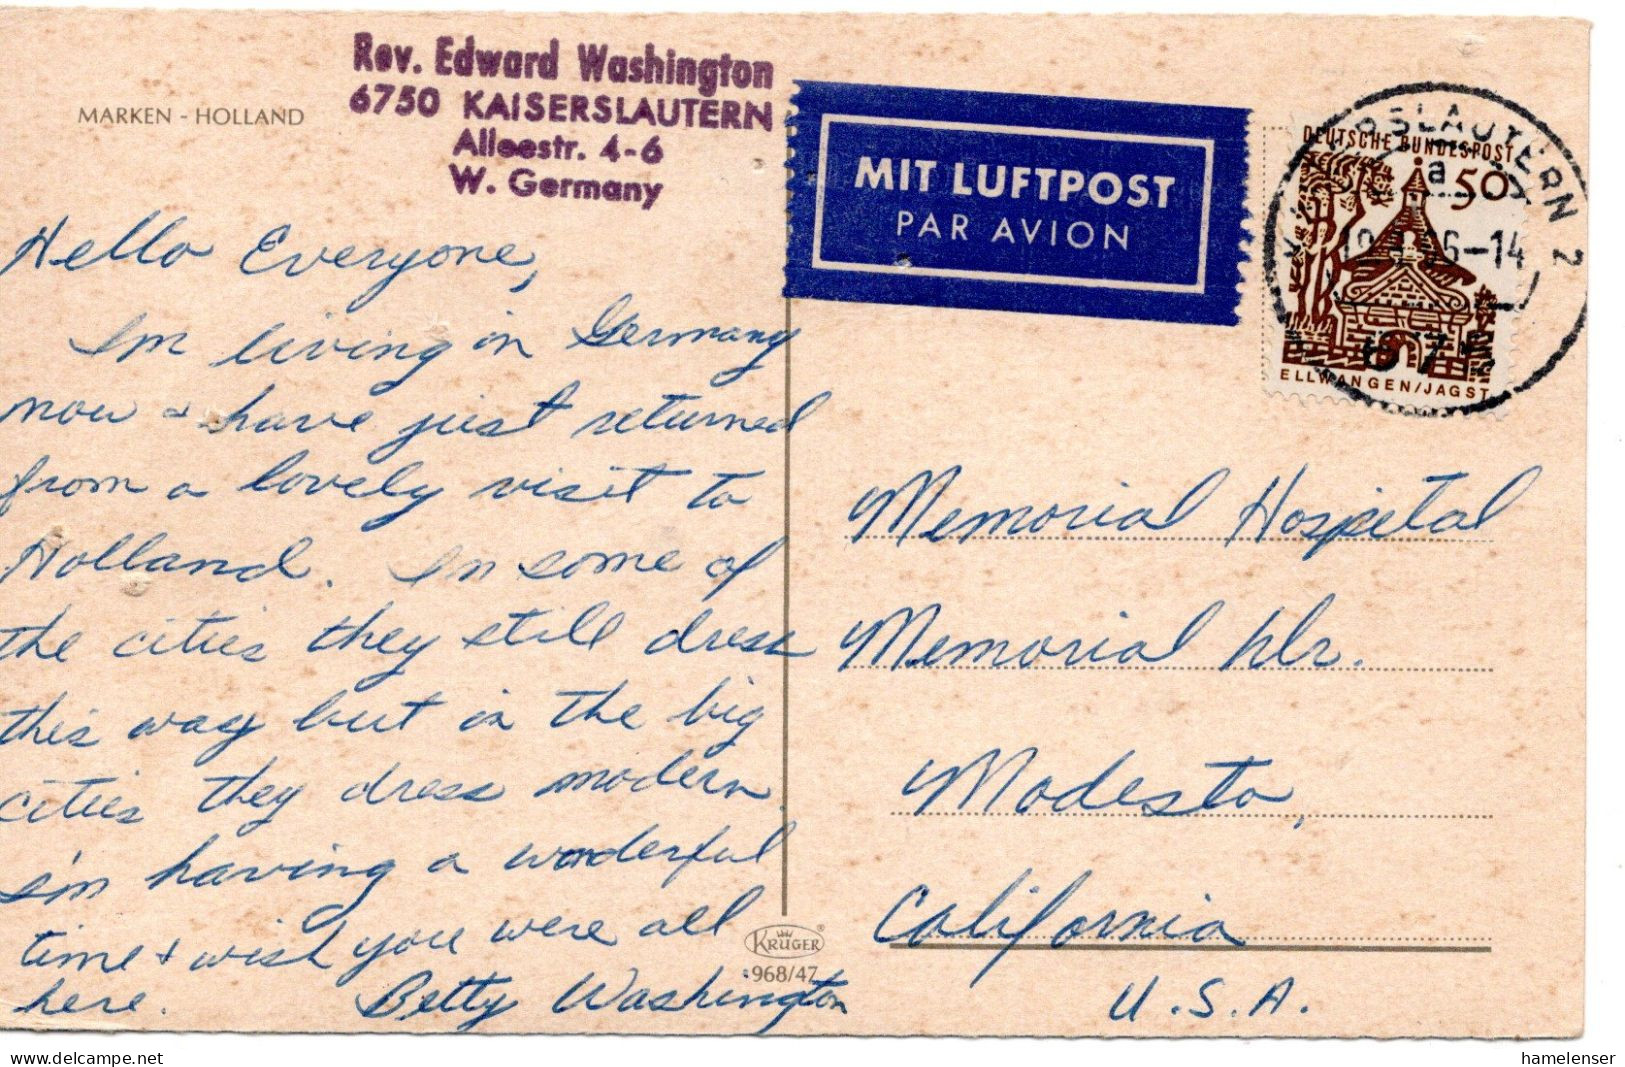 MARKEN - HOLLAND
Rev. Edward Washington
6750 KAISERSLAUTERN
Alleestr. 4-6
W. Germany
MIT LUFTPOST
PAR AVION
DEUTSCHE BUNDESPOST
50
ELLWANGEN/JAGST
KAISERSLAUTERN 2
a
-14
675
Hello Everyone,
Im living in Germany
now & have just returned
from a lovely visit to
Holland. In some of
the cities they still dress
this way but in the big
cities they dress modern.
I'm having a wonderful
time & wish you were all
here. Betty Washington
Memorial Hospital
Memorial Hlr.
Modesto,
California
U.S.A.
KRÜGER
968/47
hamelenser